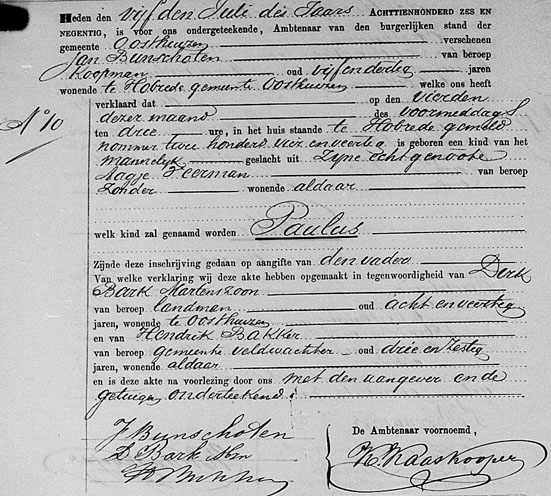 Heden den vijfden Juli des Jaars ACHTTIENHONDERD ZES EN
NEGENTIG, is voor ons ondergeteekende, Ambtenaar van den burgerlijken stand der
gemeente Oosthuizen verschenen
Jan Bunschoten van beroep
Koopman oud vijfendertig jaren
wonende te Hobrede gemeente Oosthuizen welke ons heeft
verklaard dat op den vierden
dezer maand des voormiddags
No 10
ten drie ure, in het huis staande te Hobrede gemeld
nommer twee honderd vier en veertig is geboren een kind van het
mannelijk geslacht uit Zijne echtgenoote
Aagje Veerman van beroep
Zonder wonende aldaar
welk kind zal genaamd worden Paulus
Zijnde deze inschrijving gedaan op aangifte van den vader
Van welke verklaring wij deze akte hebben opgemaakt in tegenwoordigheid van Dirk
Bark Martenszoon
van beroep landman oud acht en veertig
jaren, wonende te Oosthuizen
en van Hendrik Bakker
van beroep gemeente veldwachter oud drie en zestig
jaren, wonende aldaar
en is deze akte na voorlezing door ons met den aangever en de
getuigen onderteekend
J Bunschoten
D Bark Mzn
De Ambtenaar voornoemd,
K. Kaaskooper